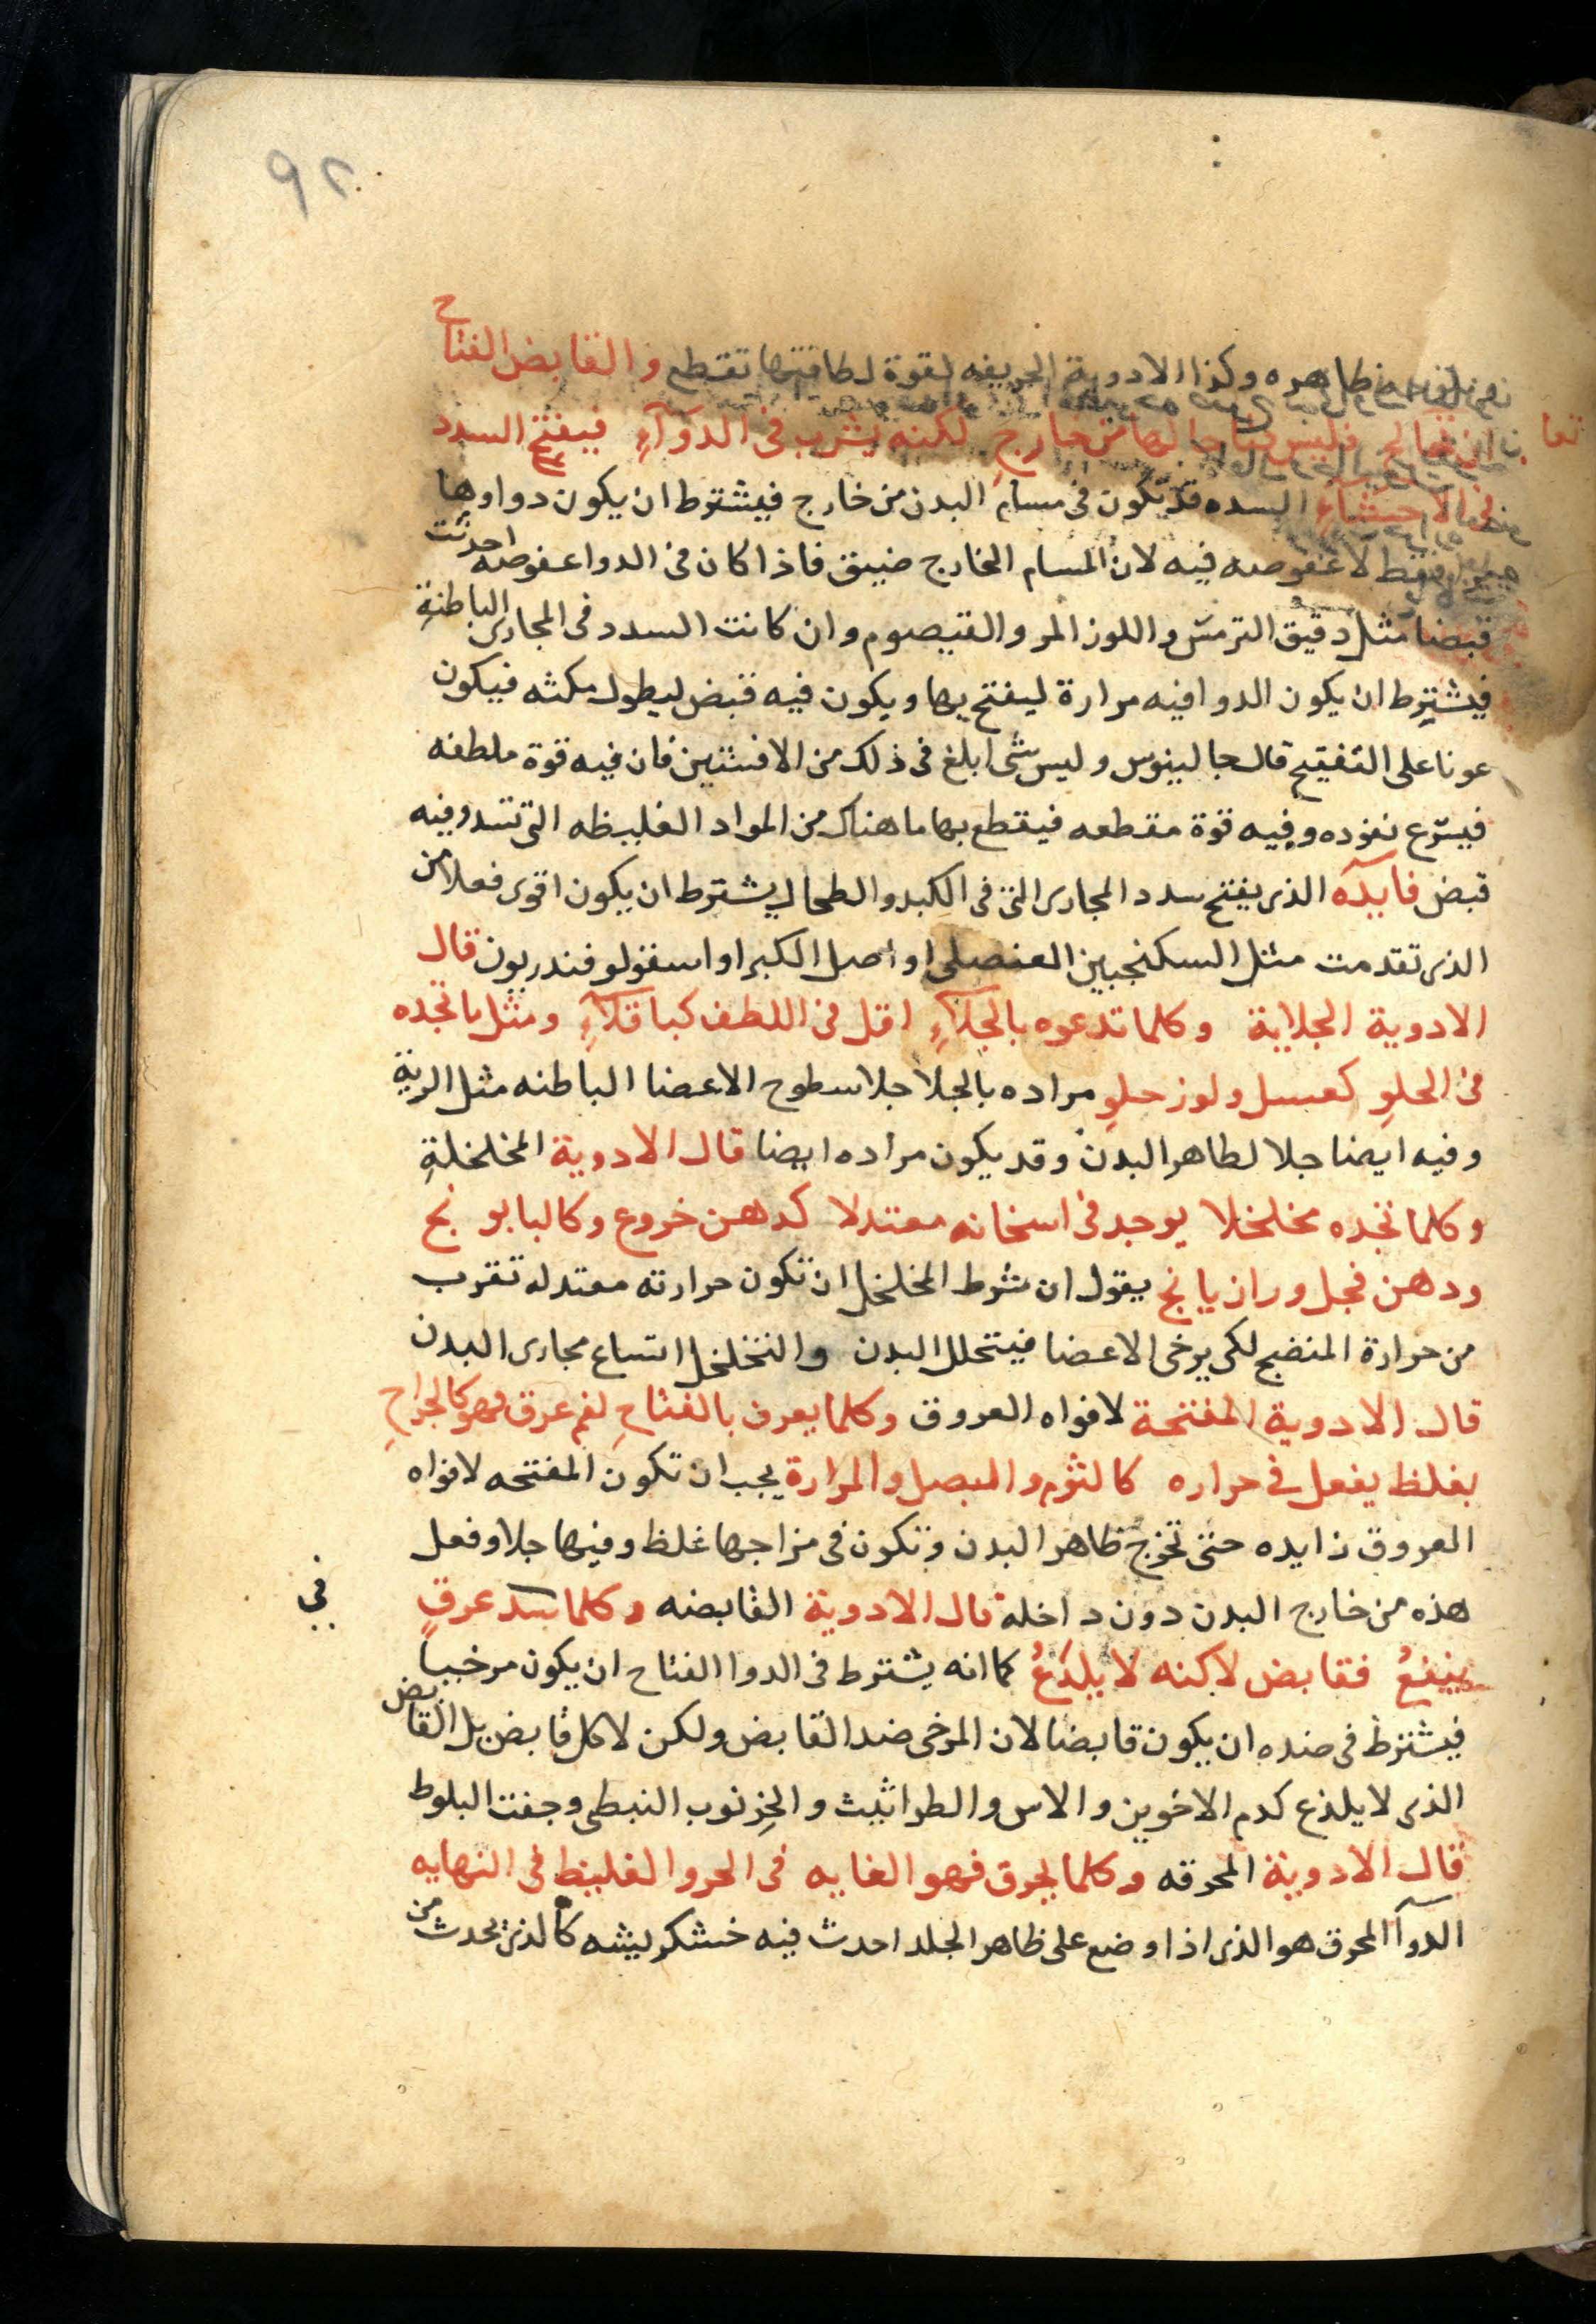 ٩٢
ظاهره وكذا الادوية الحريفه لقوة لطافتها تقطع والقابض الفتاح
ان تعالج فليس فتاحا لها من خارجٍ لكنه يشرب فى الدوآءِ فيفتح السدد
فى الاحشاءِ السده قد يكون فى مسام البدن من خارج فيشترط ان يكون دواوها
فقط لا عفوصه فيه لان المسام الخارج ضيق فاذا كان فى الدوا عفوصه احدثت
قبضا مثل دقيق الترمس واللوز المر والقيصوم وان كانت السدد فى المجارى الباطنة
فيشترط ان يكون الدوا فيه مرارة ليفتح بها ويكون فيه قبض ليطول مكثه فيكون
عونا على التفتيح قال جالينوس وليس شى ابلغ فى ذلك من الافسنتين فان فيه قوة ملطفه
فيسرع نفوذه وفيه قوة مقطعه فيقطع بها ما هناك من المواد الغليظه التى تسد وفيه
قبض فايدآه الذى يفتح سدد المجارى التى فى الكبد والطحال يشترط ان يكون اقوى فعلا من
الذى تقدمت مثل السكنجبين العنصلى او اصل الكبر او اسقولوفندريون قال
الادوية الجلاية وكلما تدعوه بالجلآءِ اقل فى اللطف كباقلآءِ ومثل ما تجده
فى الحلوِ كعسل ولوز حلوِ مراده بالجلا جلا سطوح الاعضا الباطنه مثل الرية
وفيه ايضا جلا لظاهر البدن وقد يكون مراده ايضا قال الادوية المخلخلةِ
وكلما تجده مخلخلا يوجد فى اسخانه معتدلا كدهن خروع وكالبابونج
ودهن فجل ورازيانج يقول ان شرط المخلخل ان تكون حرارته معتدله تقرب
من حرارة المنضج لكى يرخى الاعضا فيتحلل البدن والتخلخل اتساع مجارى البدن
قال الادوية المفتحة لافواه العروق وكلما يعرف بالفتاحِ لفم عرق فهو كالجراحِ
بغلظ يفعل فى حراره كالثوم والبصل والمرارة يجب ان تكون المفتحه لافواه
العروق زايده حتى تخرج ظاهر البدن وتكون فى مزاجها غلظ وفيها جلا وفعل
هذه من خارج البدن دون داخله قال الادوية القابضه وكلما يسد عرقٍ
فى
ينفعُ فقابض لاكنه لا يلذعُ كما انه يشترط فى الدوا الفتاح ان يكون مرخيا
فيشترط فى ضده ان يكون قابضا لان المرخى ضد القابض ولكن لا كل قابض بل القابض
الذى لا يلذع كدم الاخوين والاس والطراثيث والخرنوب النبطى وجفت البلوط
قال الادوية المحرقه وكلما يحرق فهو الغايه فى الحر والغليظ فى النهايه
الدوآ المحرق هو الذى اذا وضع على ظاهر الجلد احدث فيه خشكريشه كالذى يحدث من